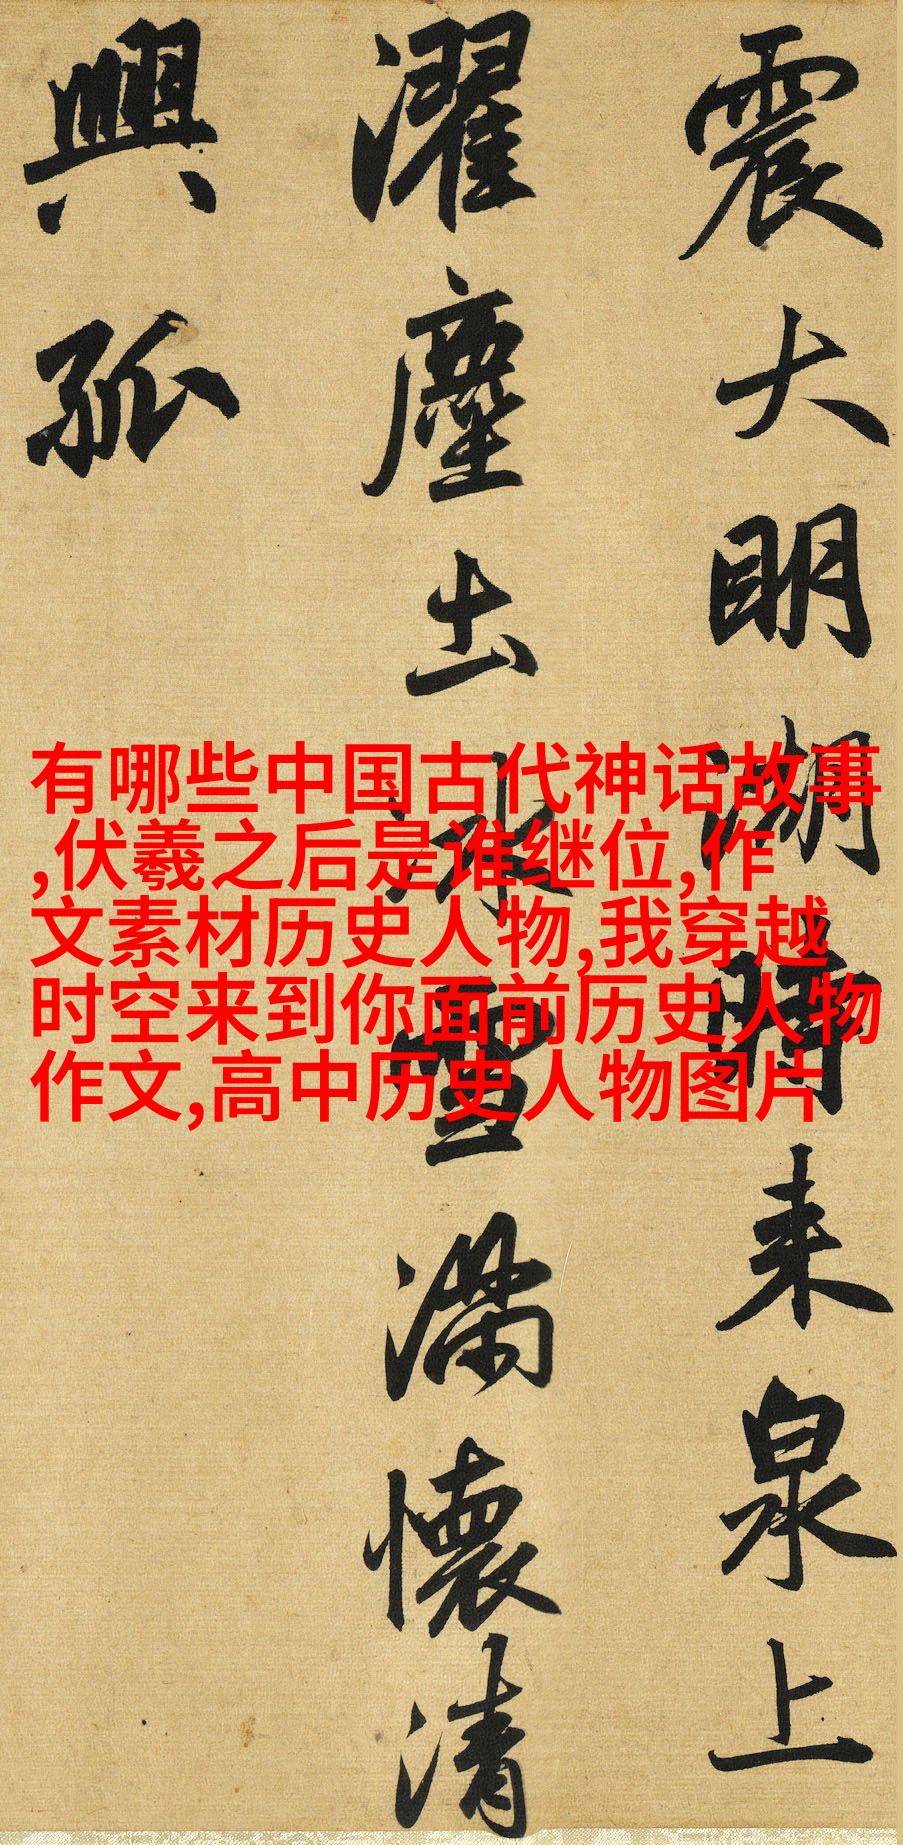 震大明湖時来泉上
濯塵土冰雪滿懷清
興孤
有哪些中国古代神话故事
,伏羲之后是谁继位,作
文素材历史人物,我穿越
时空来到你面前历史人物
作文,高中历史人物图片